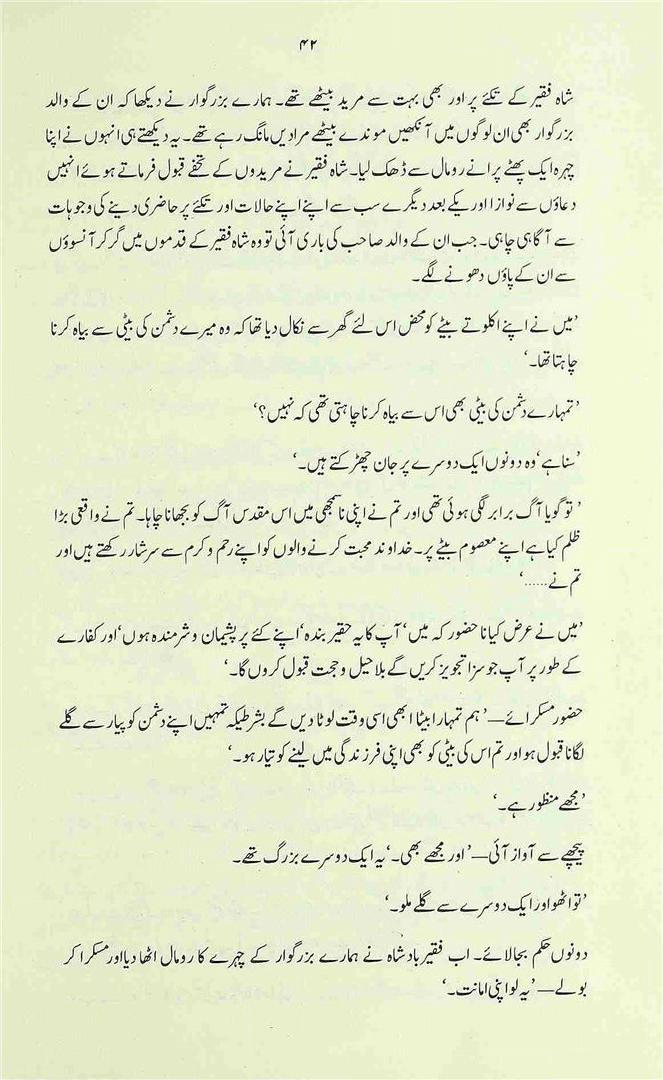 ۴۲
شاہ فقیر کے تکئے پر اور بھی بہت سے مرید بیٹھے تھے۔ ہمارے بزرگوار نے دیکھا کہ ان کے والد
بزرگوار بھی ان لوگوں میں آنکھیں موندے بیٹھے مرادیں مانگ رہے تھے۔ یہ دیکھتے ہی انہوں نے اپنا
چہرہ ایک پھٹے پرانے رومال سے ڈھک لیا۔ شاہ فقیر نے مریدوں کے تحفے قبول فرماتے ہوئے انہیں
دعاؤں سے نوازا اور یکے بعد دیگرے سب سے اپنے اپنے حالات اور تکئے پر حاضری دینے کی وجوہات
سے آگاہی چاہی۔ جب ان کے والد صاحب کی باری آئی تو وہ شاہ فقیر کے قدموں میں گر کر آنسوؤں
سے ان کے پاؤں دھونے لگے۔
’میں نے اپنے اکلوتے بیٹے کو محض اس لئے گھر سے نکال دیا تھا کہ وہ میرے دشمن کی بیٹی سے بیاہ کرنا
چاہتا تھا۔‘
’تمہارے دشمن کی بیٹی بھی اس سے بیاہ کرنا چاہتی تھی کہ نہیں؟‘
’سنا ہے‘ وہ دونوں ایک دوسرے پر جان چھڑکتے ہیں۔‘
’ تو گویا آگ برابر لگی ہوئی تھی اور تم نے اپنی ناسمجھی میں اس مقدس آگ کو بجھانا چاہا۔ تم نے واقعی بڑا
ظلم کیا ہے اپنے معصوم بیٹے پر۔ خداوند محبت کرنے والوں کو اپنے رحم و کرم سے سرشار رکھتے ہیں اور
تم نے.....‘
’میں نے عرض کیا نا حضور کہ میں‘ آپ کا یہ حقیر بندہ‘ اپنے کئے پر پشیمان و شرمندہ ہوں‘ اور کفارے
کے طور پر آپ جو سزا تجویز کریں گے بلا حیل و حجت قبول کروں گا۔‘
حضور مسکرائے—’ ہم تمہارا بیٹا ابھی اسی وقت لوٹا دیں گے بشرطیکہ تمہیں اپنے دشمن کو پیار سے گلے
لگانا قبول ہو اور تم اس کی بیٹی کو بھی اپنی فرزندگی میں لینے کو تیار ہو۔‘
’مجھے منظور ہے۔‘
پیچھے سے آواز آئی—’اور مجھے بھی۔‘ یہ ایک دوسرے بزرگ تھے۔
’تو اٹھو اور ایک دوسرے سے گلے ملو۔‘
دونوں حکم بجا لائے۔ اب فقیر بادشاہ نے ہمارے بزرگوار کے چہرے کا رومال اٹھا دیا اور مسکرا کر
بولے—’یہ لو اپنی امانت۔‘